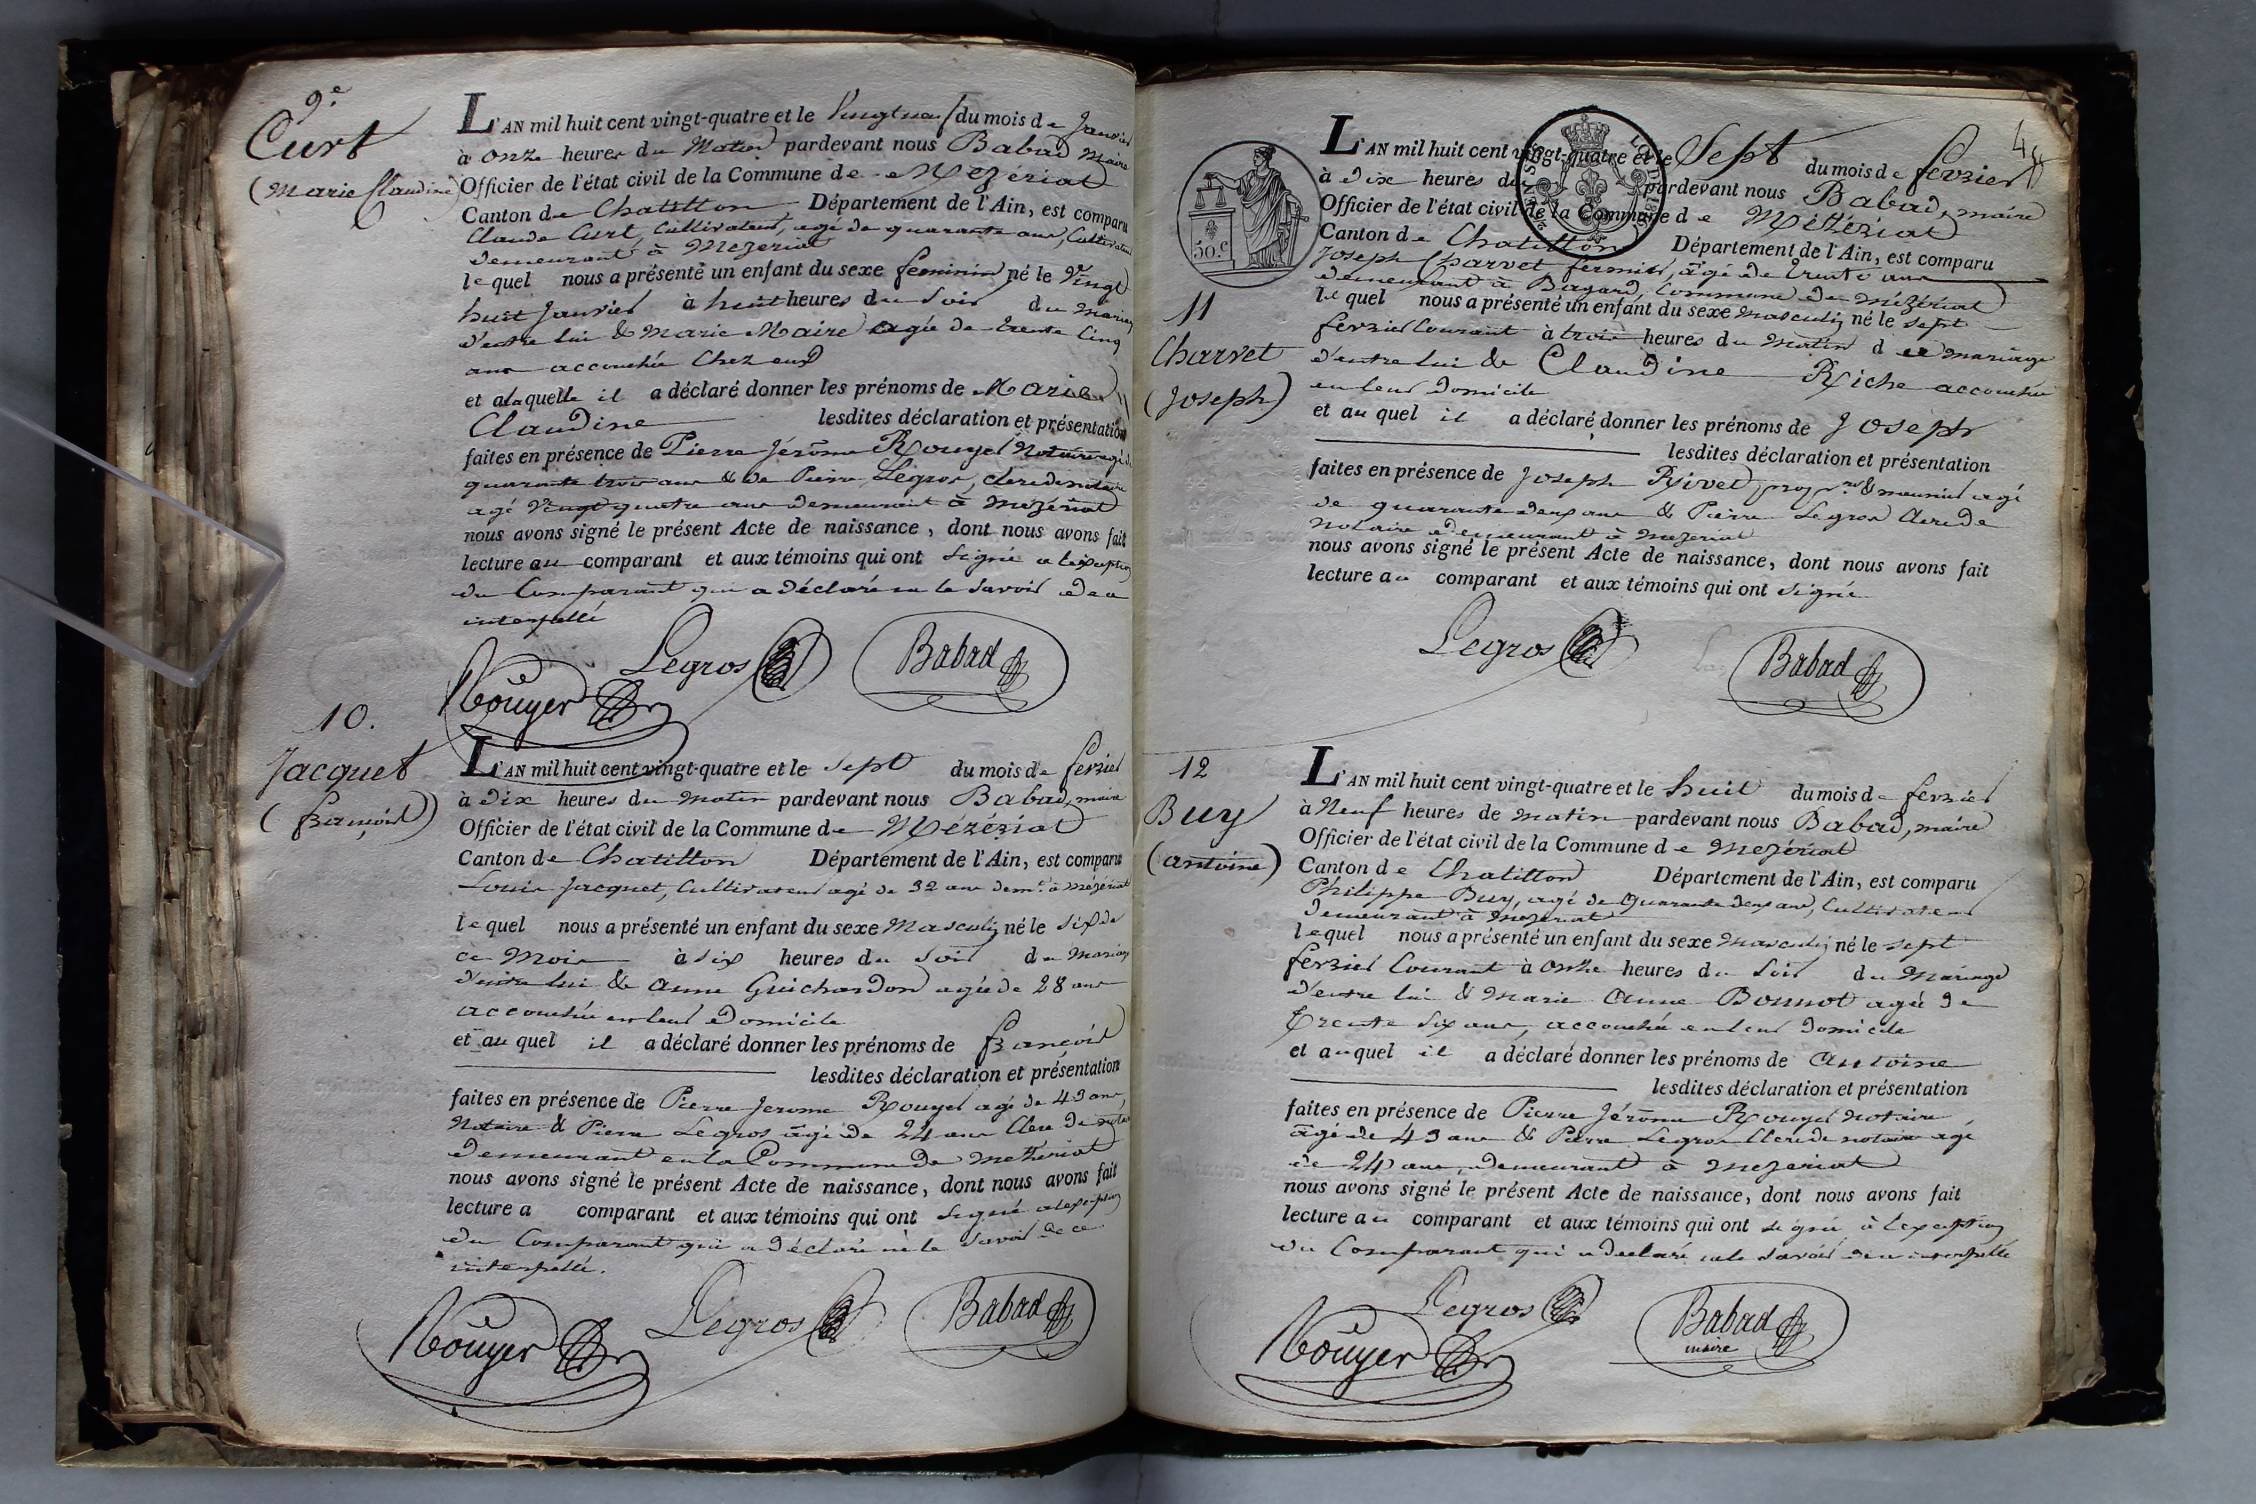 9.e
Curt
(Marie Claudine)
L'AN mil huit cent vingt-quatre et le Vingt neuf du mois de Janvier
à onze heures du Matin pardevant nous Babad Maire
Officier de l'état civil de la Commune de Mezeriat
Canton de Chatillon Département de l'Ain, est comparu
Claude Curt, Cultivateur, agé de quarante ans, Cultivateur
demeurant à Mezeriat
lequel nous a présenté un enfant du sexe feminin né le Vingt
huit Janvier à huit heures du Soir du Mariage
d'entre lui & Marie Maire agée de trente Cinq
ans accouchée Chez eux
et à laquelle il a déclaré donner les prénoms de Marie
Claudine lesdites déclaration et présentation
faites en présence de Pierre Jérôme Rouyer Notaire agé de
quarante trois ans & de Pierre Legros, clerc de notaire
agé Vingt quatre ans demeurant à Mezériat
nous avons signé le présent Acte de naissance, dont nous avons fait
lecture au comparant et aux témoins qui ont signé a lexception
du Comparant qui a déclaré ne le savoir de ce
interpellé
Legros Babad
Rouyer
10.
Jacquet
(françois)
L'AN mil huit cent vingt-quatre et le sept du mois de fevrier
à dix heures du matin pardevant nous Babad, maire
Officier de l'état civil de la Commune de Mézériat
Canton de Chatillon Département de l'Ain, est comparu
Louis Jacquet, Cultivateur agé de 32 ans demt. à Mézériat
lequel nous a présenté un enfant du sexe Masculin né le Six de
ce Mois à six heures du Soir du Mariage
d'entre lui & anne Guichardon agée de 28 ans
accouchée en leur Domicile
et au quel il a déclaré donner les prénoms de françois
lesdites déclaration et présentation
faites en présence de Pierre Jerome Rouyer agé de 43 ans,
Notaire & Pierre Legros âgé de 24 ans Clerc de notaire
demeurant en la Commune de Mezériat
nous avons signé le présent Acte de naissance, dont nous avons fait
lecture a comparant et aux témoins qui ont signé a lexception
du Comparant qui a déclaré ne le savoir de ce
interpellé.
Legros Babad
Rouyer
4
50.c
L'AN mil huit cent vingt-quatre et le Sept du mois de fevrier
à dix heures du pardevant nous Babad, maire
Officier de l'état civil de la Commune de Mézériat
Canton de Chatillon Département de l'Ain, est comparu
Joseph Charvet fermier, agé de trente ans
demeurant à Bayard Commune de Mézériat
11
Charvet
(Joseph)
lequel nous a présenté un enfant du sexe masculin né le sept
fevrier Courant à trois heures du matin d mariage
d'entre lui & Claudine Riche accouchée
en leur Domicile
et au quel il a déclaré donner les prénoms de Joseph
lesdites déclaration et présentation
faites en présence de Joseph Rivet & meunier agé
de quarante deux ans & Pierre Legros Clerc de
notaire demeurant à Mezeriat
nous avons signé le présent Acte de naissance, dont nous avons fait
lecture au comparant et aux témoins qui ont signé
Legros Babad
12
Buy
(antoine)
L'AN mil huit cent vingt-quatre et le huit du mois de fevrier
à Neuf heures de matin pardevant nous Babad, maire
Officier de l'état civil de la Commune de Mezériat
Canton de Chatillon Département de l'Ain, est comparu
Philippe Buy, agé de Quarante deux ans, Cultivateur
demeurant à Mezeriat
lequel nous a présenté un enfant du sexe masculin né le sept
fevrier Courant à onze heures du Soir du Mariage
d'entre lui & Marie Anne Bonnot agée de
trente Six ans, accouchée en leur Domicile
et auquel il a déclaré donner les prénoms de Antoine
lesdites déclaration et présentation
faites en présence de Pierre Jérôme Rouyer Notaire
âgé de 43 ans & Pierre Legros Clerc de notaire agé
de 24 ans, demeurant à Mezeriat
nous avons signé le présent Acte de naissance, dont nous avons fait
lecture au comparant et aux témoins qui ont signé à lexception
du Comparant qui a declaré ne le savoir de ce interpellé
Legros Babad
maire
Rouyer